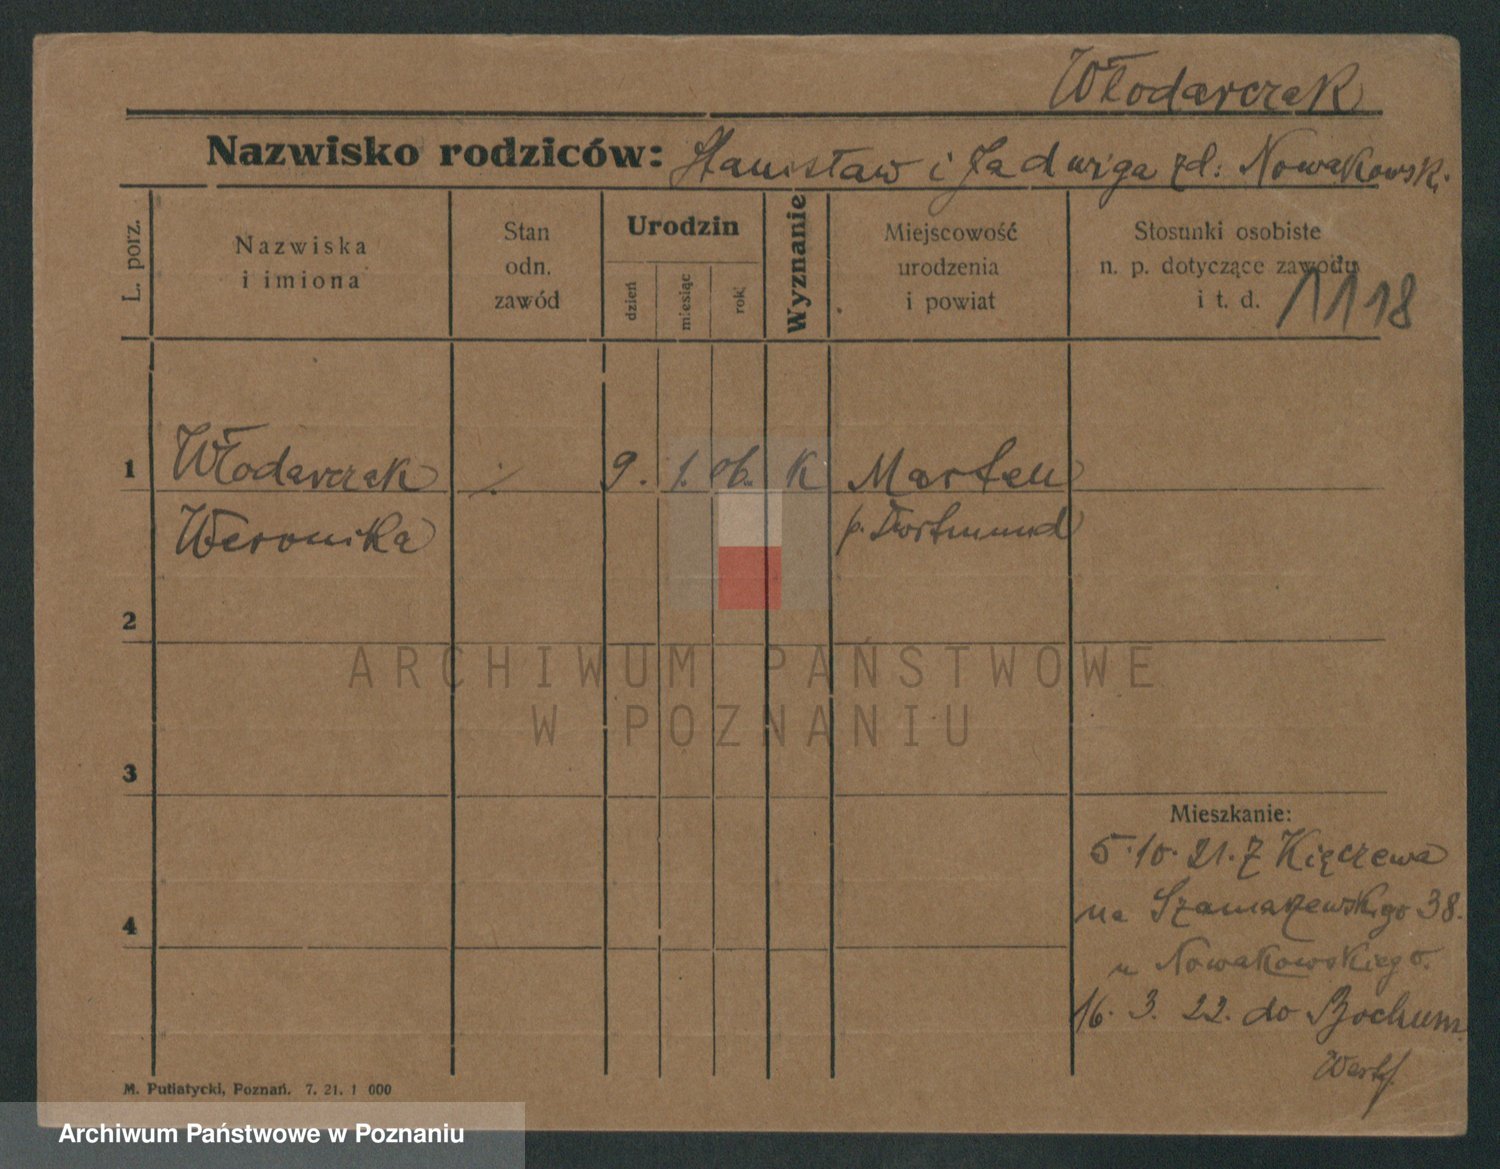 Włodarczak
Nazwisko rodziców: Stanisław i Jadwiga zd: Nowakowski.
L. porz.
Nazwiska
i imiona
Stan
odn.
zawód
Urodzin
dzień
miesiąc
rok
Wyznanie
Miejscowość
urodzenia
i powiat
Stosunki osobiste
n. p. dotyczące zawodu
i t. d.
1118
1 Włodarczak ./. 9. 1. 06. K Marten
Weronika p. Dortmund
2
3
4
Mieszkanie:
5.10.21. z Kięczewa
na Szamarzewskiego 38.
u Nowakowskiego.
16. 3. 22. do Bochum
Westf.
M. Putiatycki, Poznań. 7. 21. 1 000
ARCHIWUM PAŃSTWOWE
W POZNANIU
Archiwum Państwowe w Poznaniu